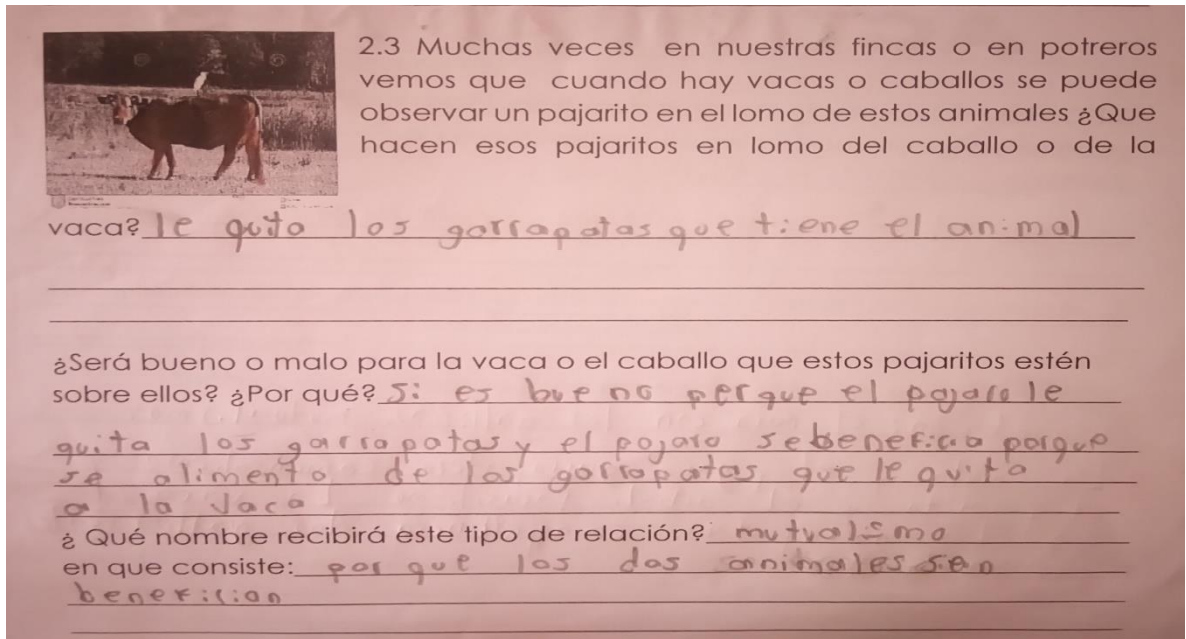 2.3 Muchas veces en nuestras fincas o en potreros
vemos que cuando hay vacas o caballos se puede
observar un pajarito en el lomo de estos animales ¿Que
hacen esos pajaritos en lomo del caballo o de la
vaca? le quita los garrapatas que tiene el animal
¿Será bueno o malo para la vaca o el caballo que estos pajaritos estén
sobre ellos? ¿Por qué? Si es bueno perque el pajaro le
quita los garrapatas y el pajaro se beneficia porque
se alimenta de las garrapatas que le quita
a la vaca
¿ Qué nombre recibirá este tipo de relación? mutualismo
en que consiste: por que los dos annimales sen
benefician